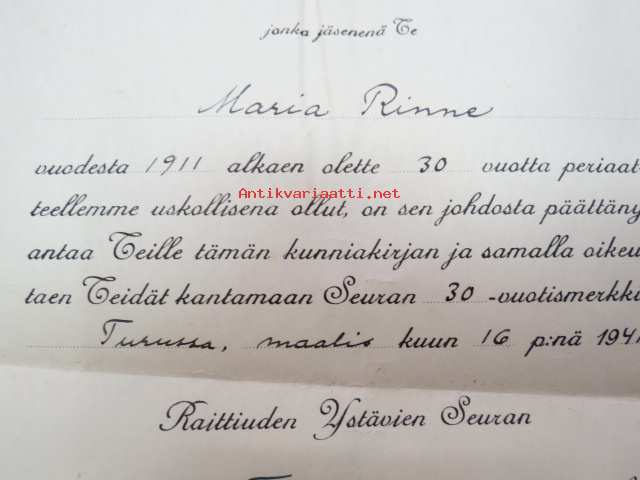 jonka jäsenenä Te
Maria Rinne
vuodesta 1911 alkaen olette 30 vuotta periaat-
Antikvariaatti.net
teellemme uskollisena ollut, on sen johdosta päättäny
antaa Teille tämän kunniakirjan ja samalla oikeu
taen Teidät kantamaan Seuran 30 -vuotismerkki
Turussa, maalis kuun 16 p:nä 1941
Raittiuden Ystävien Seuran